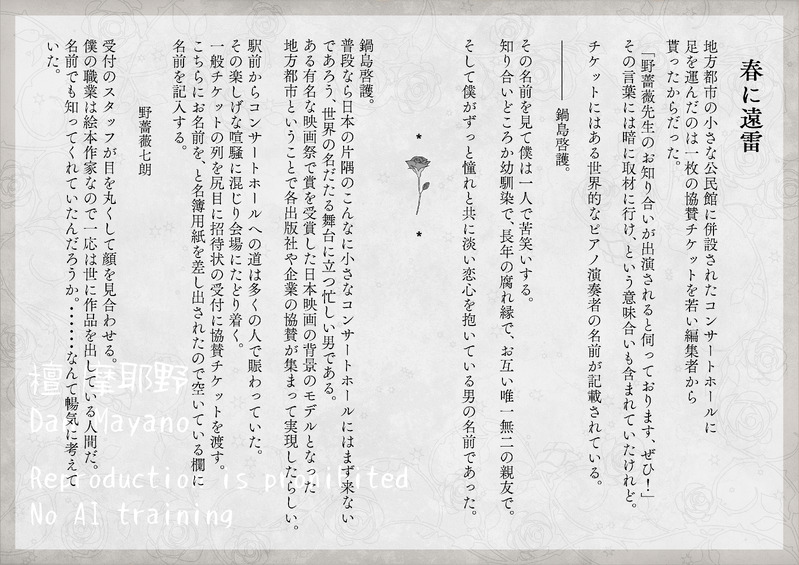 春に遠雷
地方都市の小さな公民館に併設されたコンサートホールに
足を運んだのは一枚の協賛チケットを若い編集者から
貰ったからだった。
「野薔薇先生のお知り合いが出演されると伺っております、ぜひ！」
その言葉には暗に取材に行け、という意味合いも含まれていたけれど。
チケットにはある世界的なピアノ演奏者の名前が記載されている。
――鍋島啓護。
その名前を見て僕は一人で苦笑いする。
知り合いどころか幼馴染で、長年の腐れ縁で、お互い唯一無二の親友で。
そして僕がずっと憧れと共に淡い恋心を抱いている男の名前であった。
*
*
鍋島啓護。
普段なら日本の片隅のこんなに小さなコンサートホールにはまず来ない
であろう、世界の名だたる舞台に立つ忙しい男である。
ある有名な映画祭で賞を受賞した日本映画の背景のモデルとなった
地方都市ということで各出版社や企業の協賛が集まって実現したらしい。
駅前からコンサートホールへの道は多くの人で賑わっていた。
その楽しげな喧騒に混じり会場にたどり着く。
一般チケットの列を尻目に招待状の受付に協賛チケットを渡す。
こちらにお名前を、と名簿用紙を差し出されたので空いている欄に
名前を記入する。
野薔薇七朗
受付のスタッフが目を丸くして顔を見合わせる。
僕の職業は絵本作家なので一応は世に作品を出している人間だ。
名前でも知ってくれていたんだろうか。……なんて暢気に考えて
いた。
檀 摩耶野
Dan Mayano
Reproduction is prohibited
No AI training